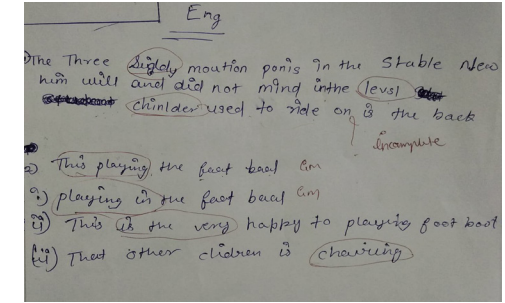 Eng
The Three Sigldy moution ponis in the Stable New
him will and did not mind inthe levsl
chinlder used to ride on is the back
incomplete
2) This playing the foot baal
i) playing in the foot baal
ii) This is the very happy to playing foot boot
iii) That other clidren is chairing